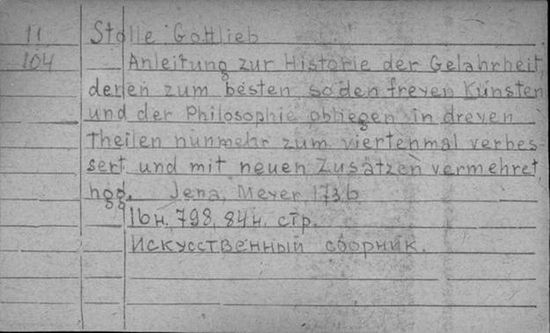 11 Stolle Gottlieb
104 Anleitung zur Historie der Gelahrheit,
denen zum besten so den freyen Künsten
und der Philosophie obliegen in dreyen
Theilen nunmehr zum viertenmal verbes-
sert und mit neuen Zusätzen vermehret
hgg. Jena, Meyer, 1736
16 н, 798, 84 н. стр.
Искусственный сборник.